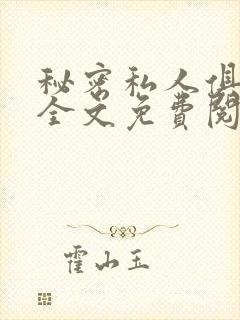 秘密私人俱
全文免费阅
霍山玉